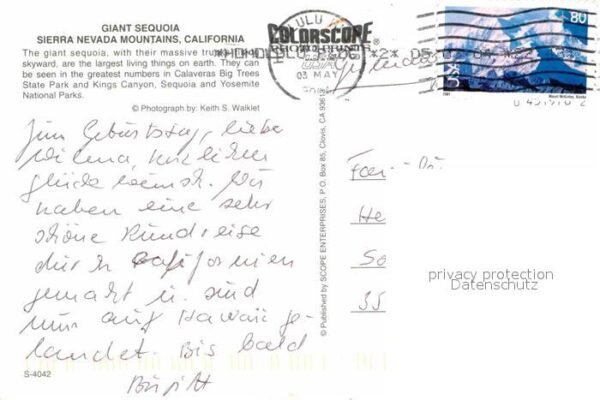 GIANT SEQUOIA
SIERRA NEVADA MOUNTAINS, CALIFORNIA
The giant sequoia, with their massive trunks
skyward, are the largest living things on earth. They can
be seen in the greatest numbers in Calaveras Big Trees
State Park and Kings Canyon, Sequoia and Yosemite
National Parks.
© Photograph by: Keith S. Walklet
Zum Geburtstag, liebe
Wilma, herzlichen
Glückwunsch. Wir
haben eine sehr
schöne Rundreise
durch Californien
gemacht u. sind
nun auf Hawaii ge-
landet. Bis bald
Birgitt
S-4042
COLORSCOPE
PHOTO PRINTS
© Published by SCOPE ENTERPRISES, P.O. Box 85, Clovis, CA
03 MAY
USA
80
Mount McKinley, Alaska
Fam.
He
So
35
privacy protection
Datenschutz